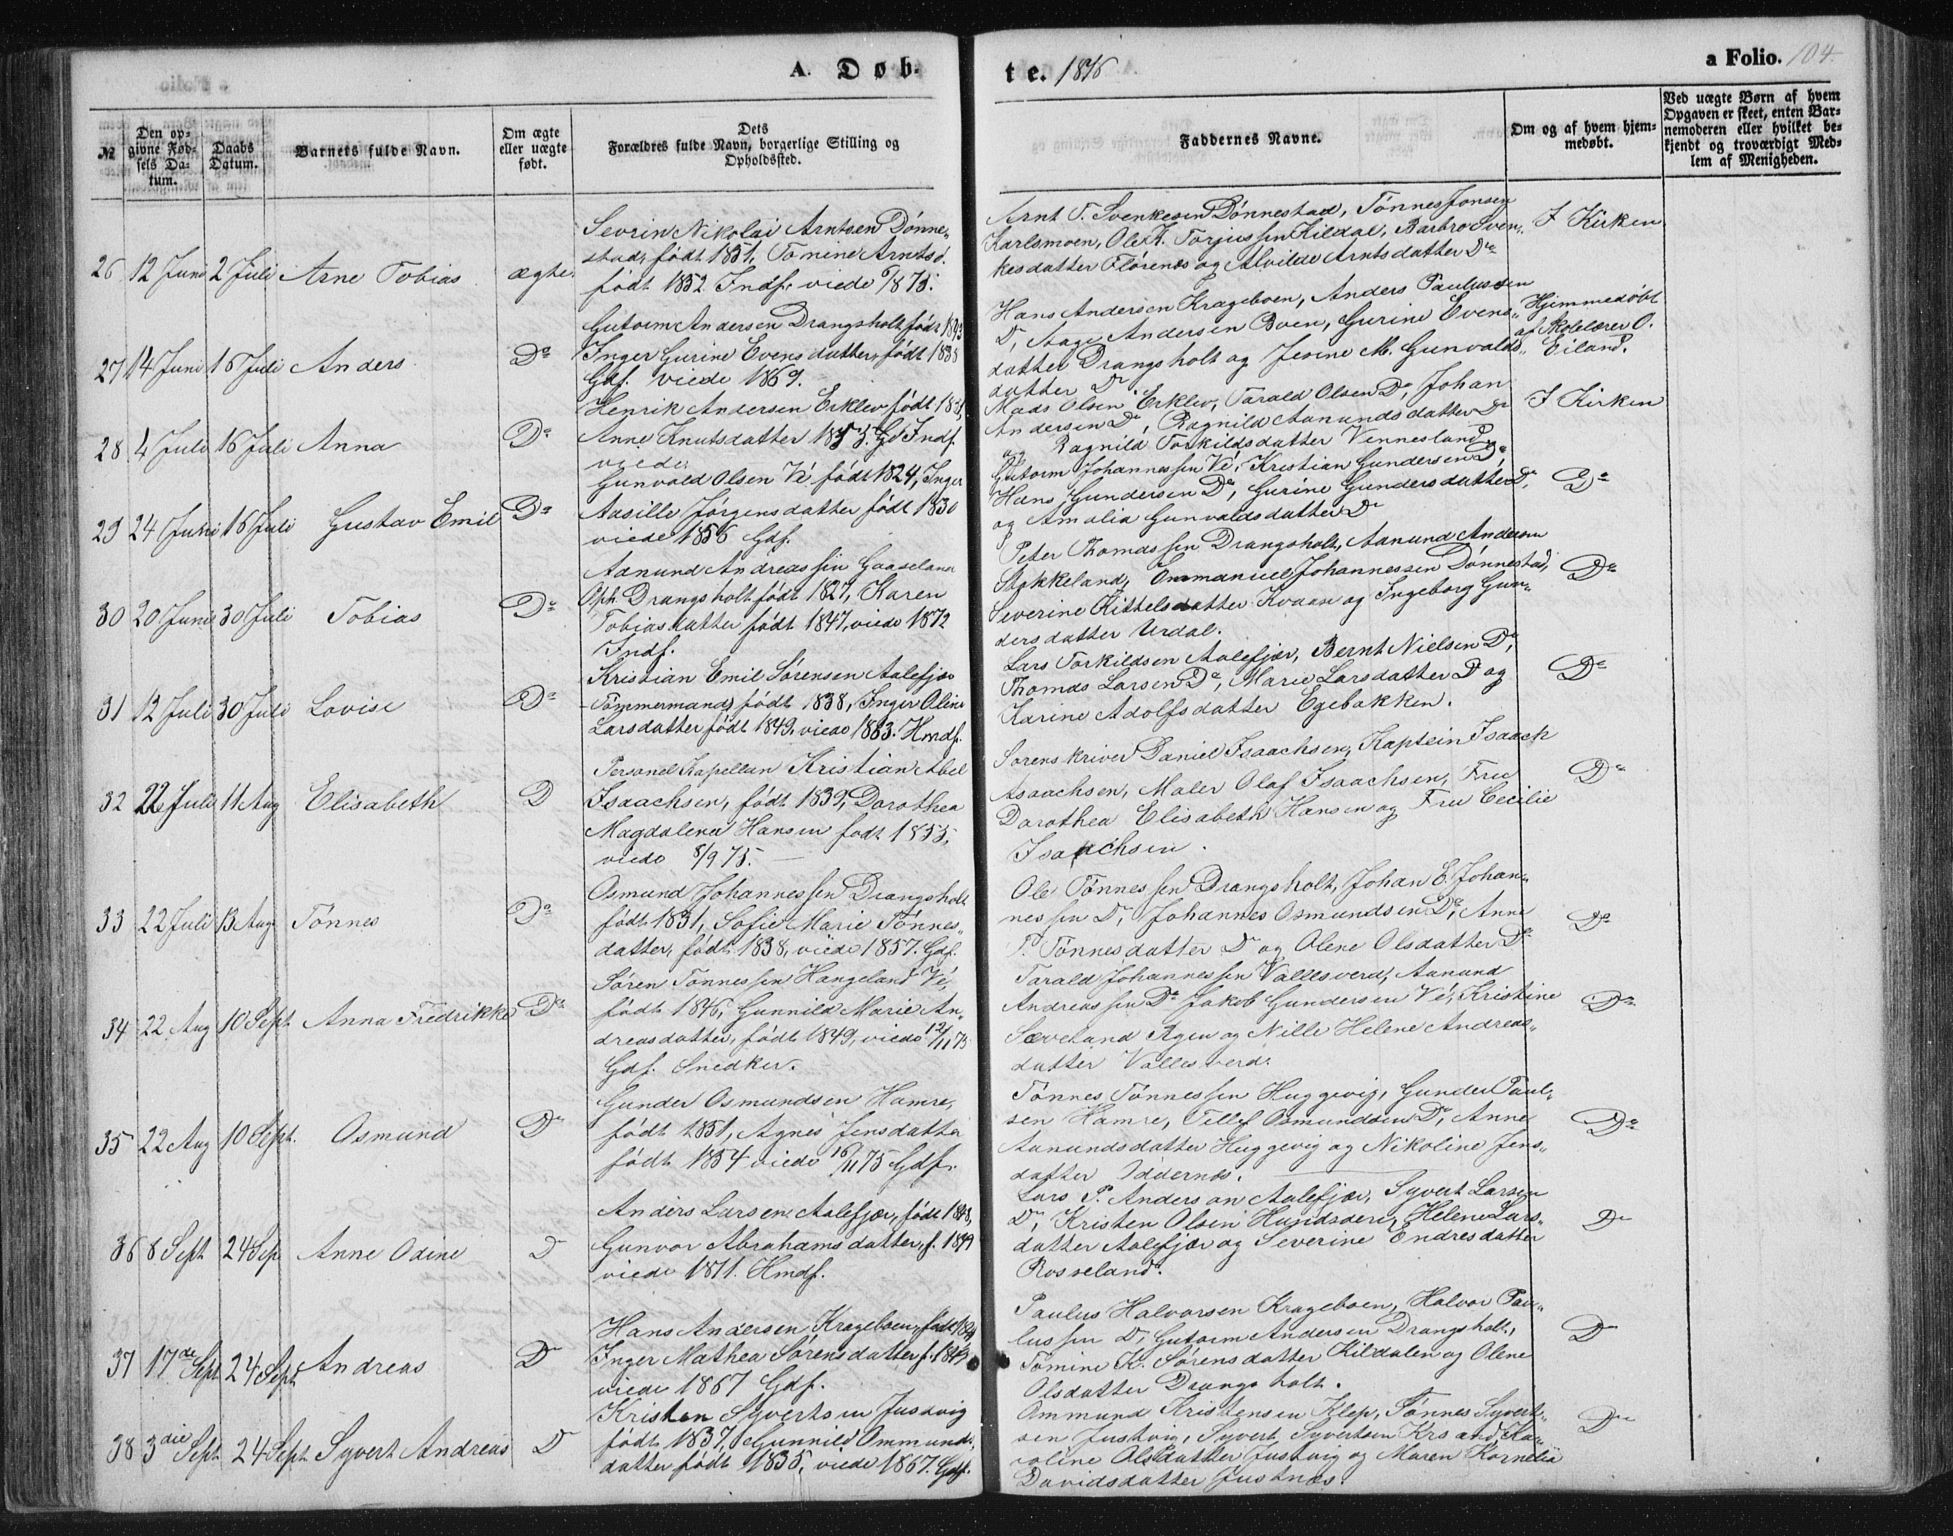 A. Døb-
te. 1876
a Folio. 104.
№
Den opgivne Fødsels Datum.
Daabs Datum.
Barnets fulde Navn.
Om ægte eller uægte født.
Dets Forældres fulde Navn, borgerlige Stilling og Opholdsted.
Faddernes Navne.
Om og af hvem hjemmedøbt.
Ved uægte Børn af hvem Opgaven er skeet, enten Barnemoderen eller hvilket bekjendt og troværdigt Medlem af Menigheden.
26 12 Juni 2 Juli Arne Tobias ægte
Sevrin Nikolai Arntsen Dønne-
stad, født 1851, Tomine Arntsd.
født 1852 Indf. viede 1875.
Arnt T. Svenkesen Dønnestad, Tønnes Jonsen
Karlsmoen, Ole K. Torjussen Kildal, Barbro Sven-
kesdatter Florenæs og Alvilde Arntsdatter Do
I Kirken
27 14 Juni 16 Juli Anders Do
Gutorm Andersen Drangsholt født
Inger Gurine Evensdatter, født 1838
Gdf. viede 1869.
Hans Andersen Krageboen, Anders Paulussen
D, Aage Andersen Boen, Gurine Evens-
datter Drangsholt og Jesine M. Gunvalds-
datter Do
Hjemmedøbt
af Skolelærer O.
Eiland.
28 4 Juli 16 Juli Anna Do
Henrik Andersen Erklev født
Anne Knutsdatter Gd Indf.
viede
Mads Olsen Erklev, Tarald Olsen Do, Johan
Andersen Do, Ragnild Aanundsdatter Do
og Ragnild Torkildsdatter Vennesland
I Kirken
29 24 Juni 16 Juli Gustav Emil Do
Gunvald Olsen Vé født 1824, Inger
Aasille Jørgensdatter født 1830
viede 1856 Gdf.
Gutorm Johannessen Vé, Kristian Gundersen Do,
Hans Gundersen Do, Gurine Gundersdatter Do,
og Amalia Gunvaldsdatter Do
Do
30 20 Juni 30 Juli Tobias Do
Aanund Andreassen Gaaseland
Oph. Drangsholt født 1827, Karen
Tobiasdatter født 1847, viede 1872
Indf.
Peter Thomassen Drangsholt, Aanund Andersen
Stokkeland, Emmanuel Johannessen Dønnestad,
Severine Kittelsdatter Kvaase og Ingeborg Gun-
dersdatter Urdal.
Do
31 12 Juli 30 Juli Lovise Do
Kristian Emil Sørensen Aalefjær
Tømmermand, født 1838, Inger Oline
Larsdatter født 1849, viede 1883. Hmdf.
Lars Torkildsen Aalefjær, Bernt Nielsen Do,
Thomas Larsen Do, Marie Larsdatter D og
Karine Adolfsdatter Egebakken.
Do
32 22 Juli 11 Aug Elisabeth D
Personel Kapellan Kristian Abel
Isaachsen, født 1839, Dorothea
Magdalena Hansen født 1855,
viede 8/9 75.
Sorenskriver Daniel Isaachsen, Kaptein Isaach
Isaachsen, Maler Olaf Isaachsen, Fru
Dorothea Elisabeth Hansen og Fru Cecilie
Isaachsen.
Do
33 22 Juli 13 Aug Tønnes Do
Osmund Johannessen Drangsholt
født 1831, Sofie Marie Tønnes-
datter, født 1838, viede 1857. Gdf.
Ole Tønnessen Drangsholt, Johan E. Johan-
nessen Do, Johannes Osmundsen Do, Anne
T. Tønnesdatter Do og Olene Olsdatter Do
Do
34 22 Aug 10 Sept. Anna Fredrikke Do
Søren Tønnessen Hangeland Vé,
født 1846, Gunnild Marie An-
dreasdatter, født 1849, viede 12/11 75
Gdf. Snedker.
Tarald Johannessen Vallesverd, Aanund
Andreassen Do Jakob Gundersen Vé, Kristine
Sæveland Agen og Nille Helene Andreas-
datter Vallesverd.
Do
35 22 Aug 10 Sept. Osmund Do
Gunder Osmundsen Hamre,
født 1851, Agnes Jensdatter
født 1854 viede 16/11 75 Gdf.
Tønnes Tønnessen Huggevig, Gunder Paul-
sen Hamre, Tellef Osmundsen Do, Anne
Aanundsdatter Huggevig og Nikoline Jens-
datter Oddernæs.
Do
36 8 Sept 24 Sep Anne Odine D
Anders Larsen Aalefjær, født 1843,
Gunvor Abrahamsdatter, f. 1849
viede 1871. Hmdf.
Lars P. Andersen Aalefjær, Syvert Larsen
Do, Kristen Olsen Hundsøeri, Helene Lars-
datter Aalefjær og Severine Endresdatter
Rosseland.
Do
37 17de Sept 24 Sept Andreas D
Hans Andersen Krageboen, født
Inger Mathea Sørensdatter f.
viede 1867 Gdf.
Paulus Halvorsen Krageboen, Halvor Pau-
lussen D, Gutorm Andersen Drangsholt,
Tomine K. Sørensdatter Kildalen og Olene
Olsdatter Drangsholt.
D
38 3die Sept 24 Sept Syvert Andreas D
Kristen Syvertsen Justvig
født 1837, Gunnild Ommunds-
datter født 1835, viede 1867. Gdf.
Ommund Kristensen Klep, Tønnes Syvert-
sen Justvig, Syvert Syvertsen Krsand Ka-
roline Olsdatter Justvig og Maren Kornelia
Davidsdatter Justnæs.
Do